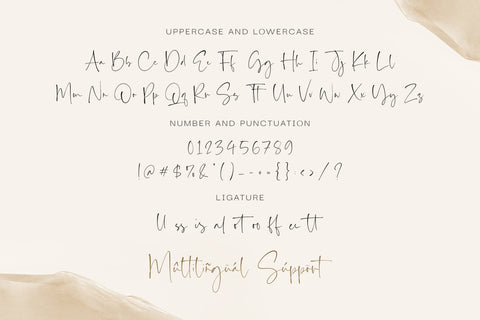 UPPERCASE AND LOWERCASE
Aa Bb Cc Dd Ee Ff Gg Hh Ii Jj Kk Ll
Mm Nn Oo Pp Qq Rr Ss Tt Uu Vv Ww Xx Yy Zz
NUMBER AND PUNCTUATION
0123456789
!@#$%&*()_-+={}:<>/?
LIGATURE
ll ss is al ot oo ff ee tt
Mûltilingüál Súppört